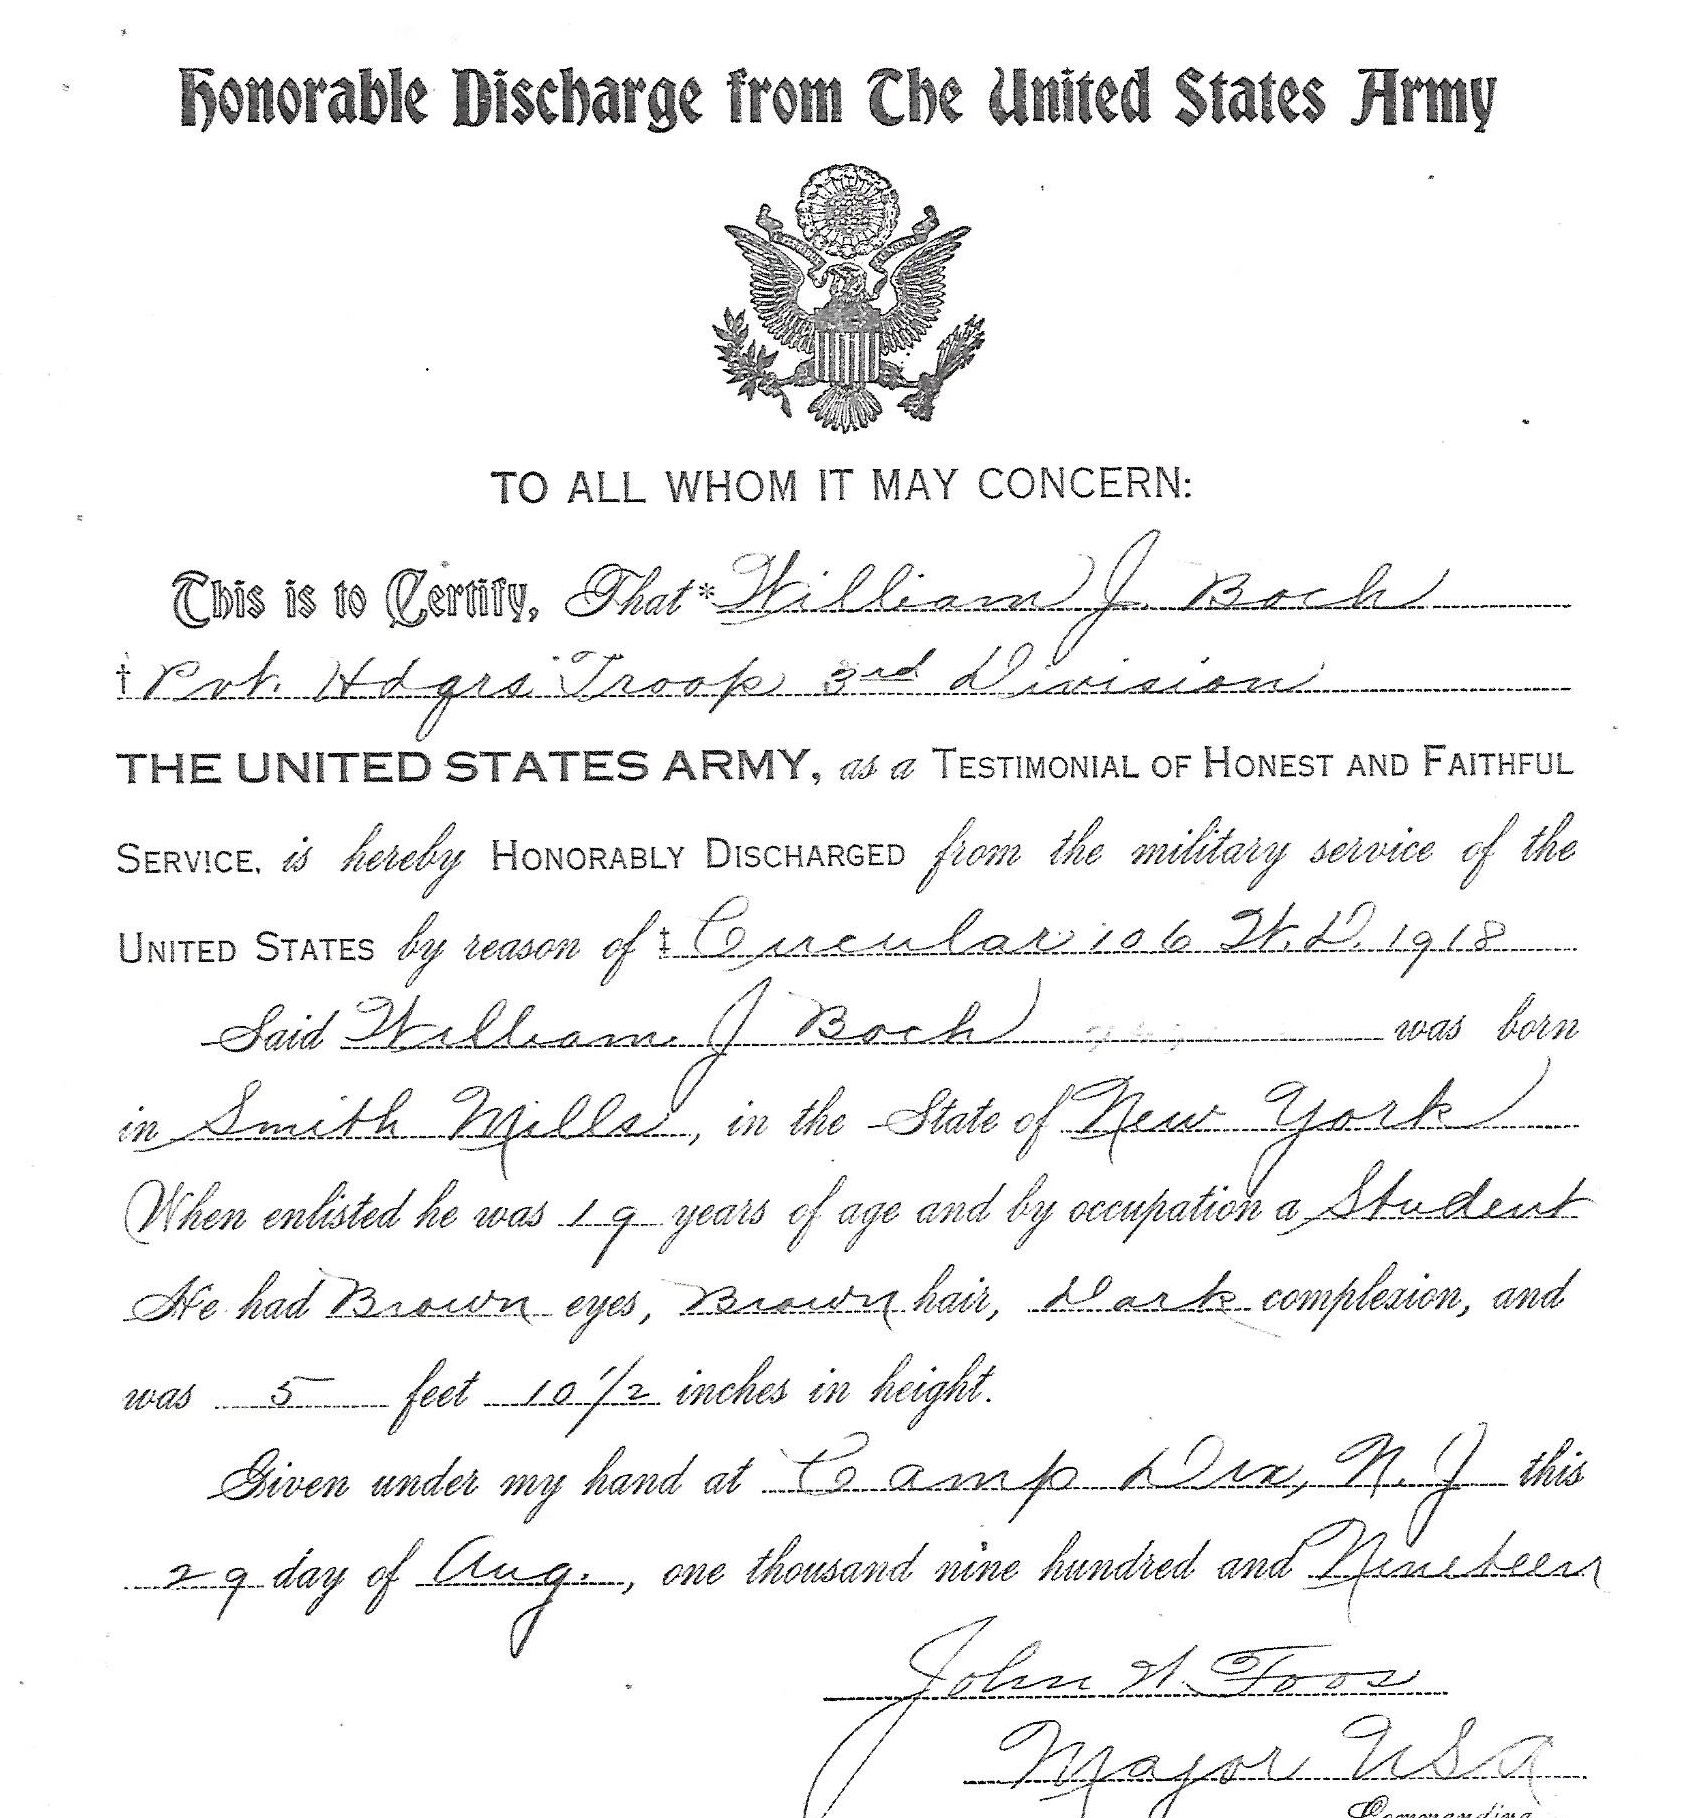 Honorable Discharge from The United States Army
TO ALL WHOM IT MAY CONCERN:
This is to Certify, That* William J. Boch
† Pvt. Hdqrs Troop 3rd Division
THE UNITED STATES ARMY, as a TESTIMONIAL OF HONEST AND FAITHFUL
SERVICE, is hereby HONORABLY DISCHARGED from the military service of the
UNITED STATES by reason of ‡ Circular 106 W.D. 1918
Said William J Boch was born
in Smith Mills, in the State of New York
When enlisted he was 19 years of age and by occupation a Student
He had Brown eyes, Brown hair, Dark complexion, and
was 5 feet 10 1/2 inches in height.
Given under my hand at Camp Dix, N.J this
29 day of Aug., one thousand nine hundred and Nineteen
John W. Foos
Major USA
Commanding